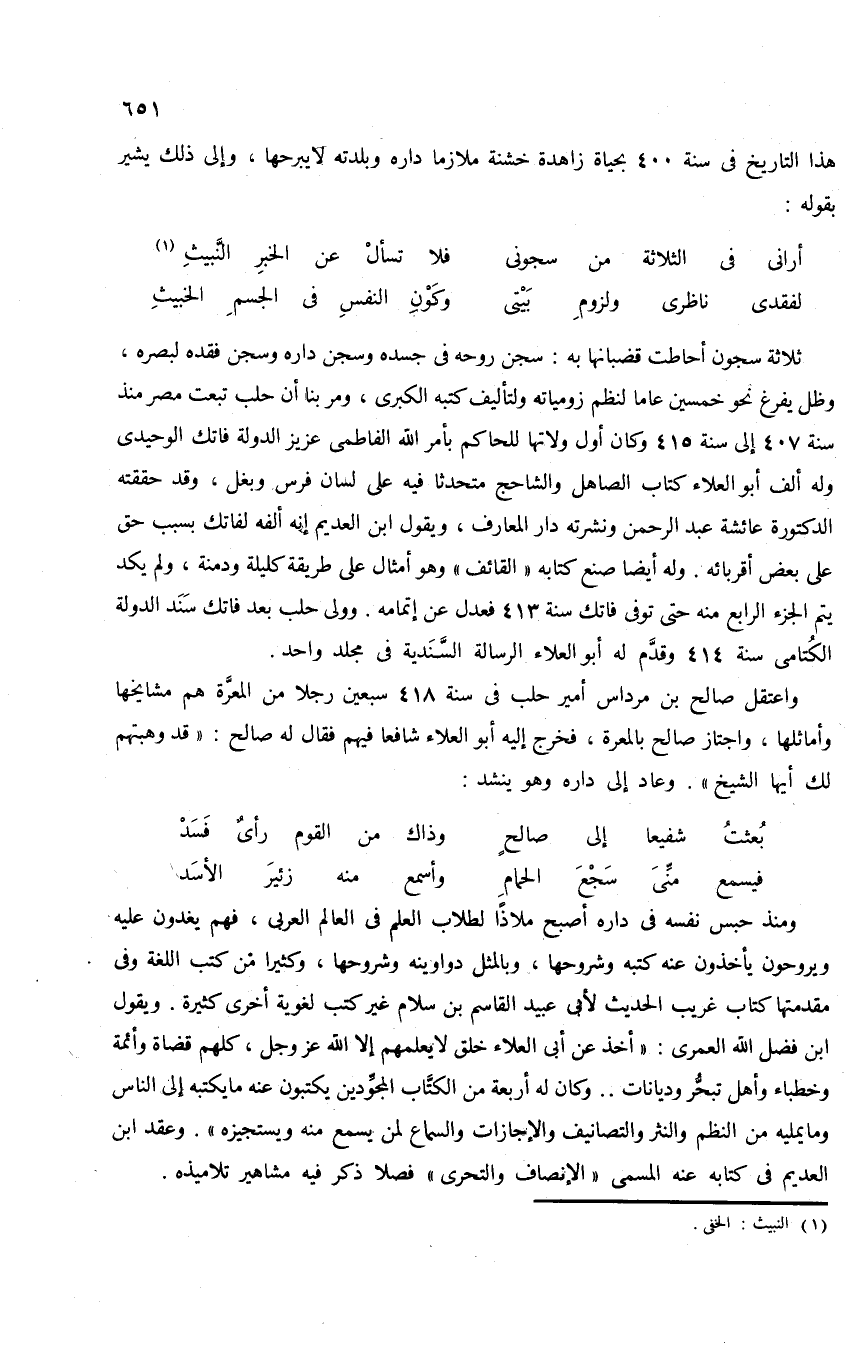 ٦٥١
هذا التاريخ فى سنة ٤٠٠ بحياة زاهدة خشنة ملازما داره وبلدته لايبرحها ، وإلى ذلك يشير
بقوله :
أرانى فى الثلاثة من سجونى فلا تسألْ عن الخبرِ النَّبيثِ (١)
لفقدى ناظرى ولزومِ بَيْتى وكَوْنِ النفسِ فى الجسمِ الخبيثِ
ثلاثة سجون أحاطت قضبانها به : سجن روحه فى جسده وسجن داره وسجن فقده لبصره ،
وظل يفرغ نحو خمسين عاما لنظم زومياته ولتأليف كتبه الكبرى ، ومر بنا أن حلب تبعت مصر منذ
سنة ٤٠٧ إلى سنة ٤١٥ وكان أول ولاتها للحاكم بأمر الله الفاطمى عزيز الدولة فاتك الوحيدى
وله ألف أبو العلاء كتاب الصاهل والشاحج متحدثا فيه على لسان فرس وبغل ، وقد حققته
الدكتورة عائشة عبد الرحمن ونشرته دار المعارف ، ويقول ابن العديم إنه ألفه لفاتك بسبب حق
على بعض أقربائه . وله أيضا صنع كتابه « القائف » وهو أمثال على طريقة كليلة ودمنة ، ولم يكد
يتم الجزء الرابع منه حتى توفى فاتك سنة ٤١٣ فعدل عن إتمامه . وولى حلب بعد فاتك سَنَد الدولة
الكُتامى سنة ٤١٤ وقدَّم له أبو العلاء الرسالة السَّنَدية فى مجلد واحد .
واعتقل صالح بن مرداس أمير حلب فى سنة ٤١٨ سبعين رجلا من المعرَّة هم مشايخها
وأماثلها ، واجتاز صالح بالمعرة ، فخرج إليه أبو العلاء شافعا فيهم فقال له صالح : « قد وهبتهم
لك أيها الشيخ » . وعاد إلى داره وهو ينشد :
بُعثتُ شفيعا إلى صالحٍ وذاك من القوم رأىٌ فَسَدْ
فيسمع مِنِّىَ سَجْعَ الحمامِ وأسمع منه زئيرَ الأسَد
ومنذ حبس نفسه فى داره أصبح ملاذًا لطلاب العلم فى العالم العربى ، فهم يغدون عليه
ويروحون يأخذون عنه كتبه وشروحها ، وبالمثل دواوينه وشروحها ، وكثيرا من كتب اللغة وفى
مقدمتها كتاب غريب الحديث لأبى عبيد القاسم بن سلام غير كتب لغوية أخرى كثيرة . ويقول
ابن فضل الله العمرى : « أخذ عن أبى العلاء خلق لايعلمهم إلا الله عز وجل ، كلهم قضاة وأئمة
وخطباء وأهل تبحُّر وديانات .. وكان له أربعة من الكتَّاب المجوِّدين يكتبون عنه مايكتبه إلى الناس
ومايمليه من النظم والنثر والتصانيف والإجازات والسماع لمن يسمع منه ويستجيزه » . وعقد ابن
العديم فى كتابه عنه المسمى « الإنصاف والتحرى » فصلا ذكر فيه مشاهير تلاميذه .
(١) النبيث : الخفى .